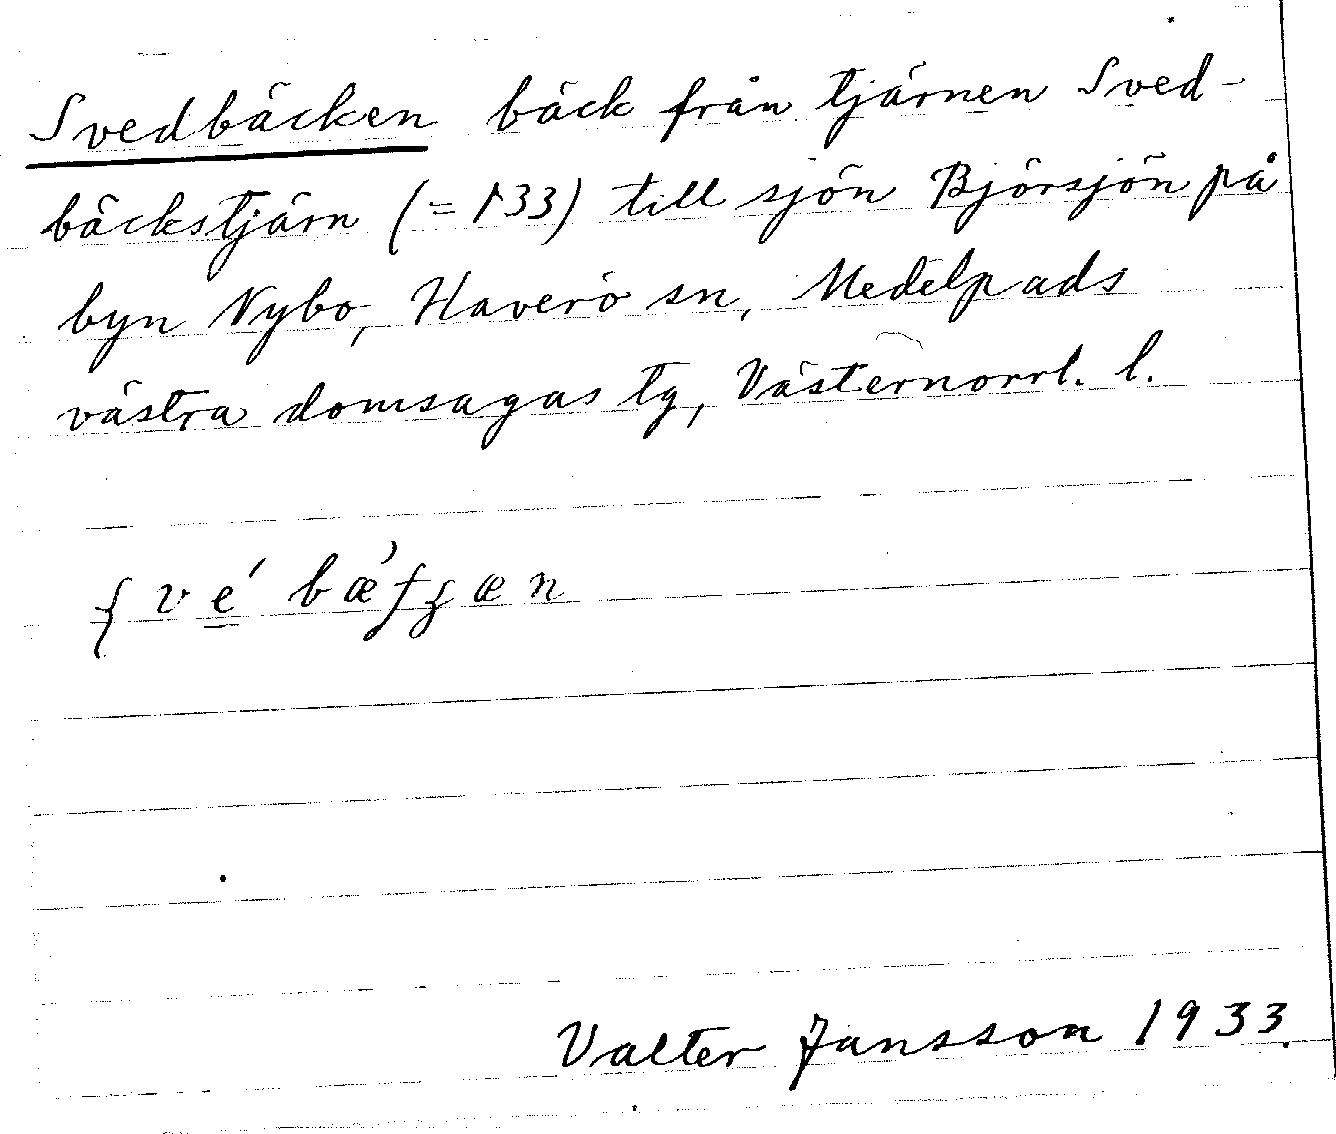 Svedbäcken bäck från tjärnen Sved-
bäckstjärn (= 133) till sjön Björsjön på
byn Nybo, Haverö sn, Medelpads
västra domsagas tg, Västernorrl. l.
Valter Jansson 1933.